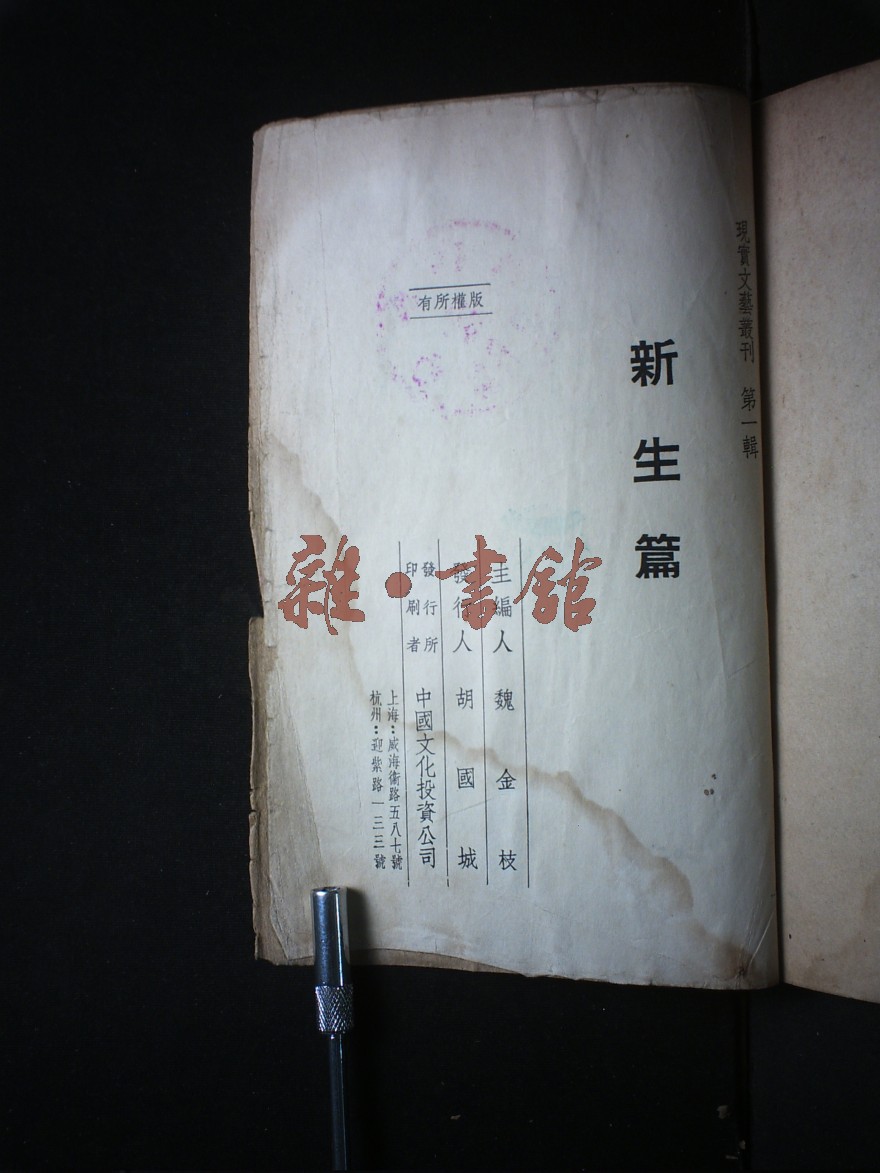 現實文藝叢刊 第一輯
新生篇
主編人 魏金枝
發行人 胡國城
發行所
印刷者
中國文化投資公司
上海：威海衛路五八七號
杭州：迎紫路一三三號
有所權版
雜·書館